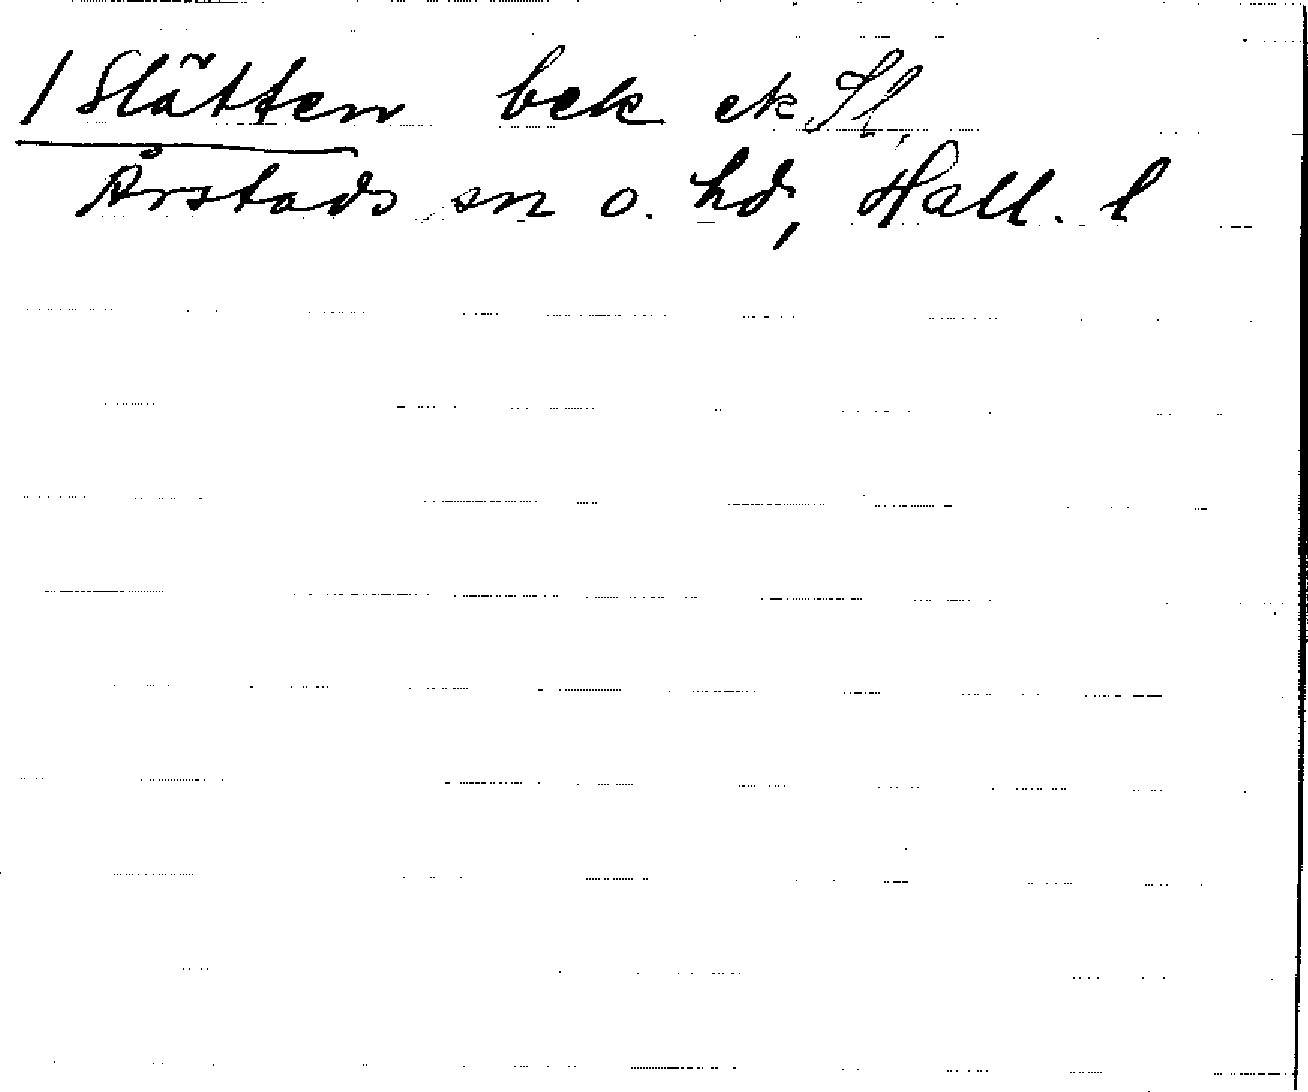 / Slätten bek ek Sl.
Årstads sn o. hd, Hall. l